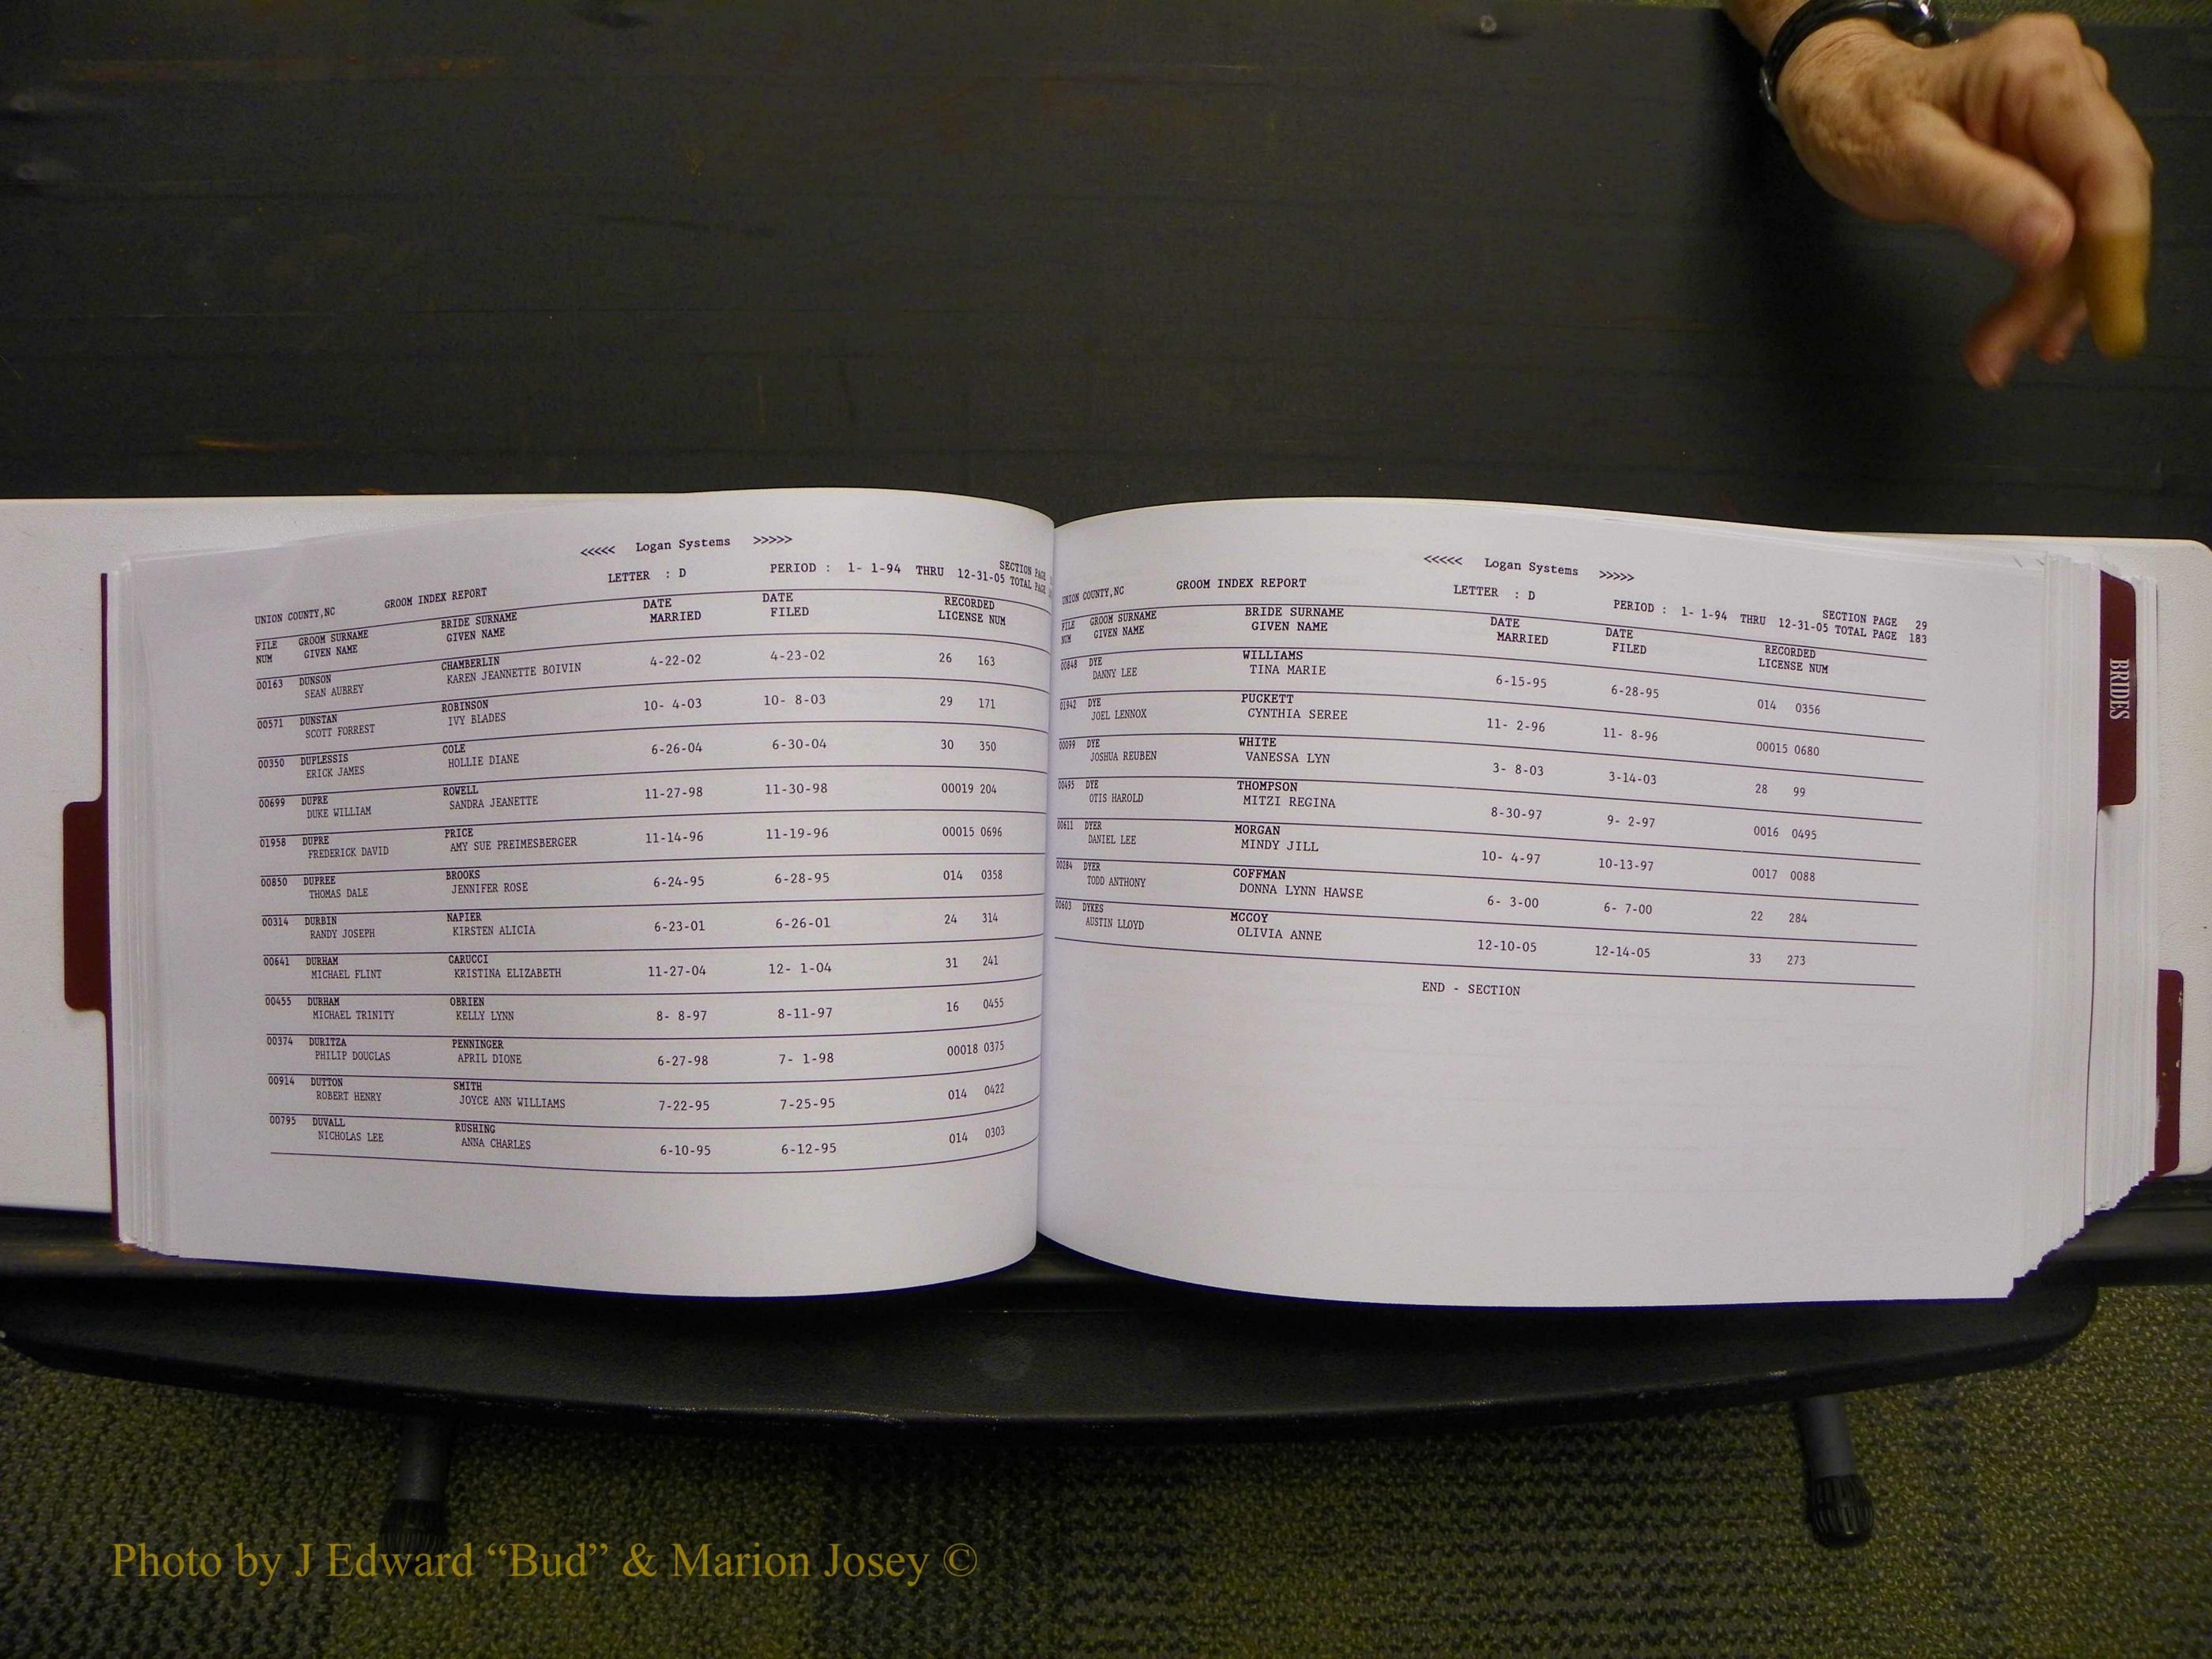 <<<<< Logan Systems >>>>>
UNION COUNTY,NC GROOM INDEX REPORT LETTER : D PERIOD : 1- 1-94 THRU 12-31-05 SECTION PAGE
TOTAL PAGE
FILE GROOM SURNAME BRIDE SURNAME DATE DATE RECORDED
NUM GIVEN NAME GIVEN NAME MARRIED FILED LICENSE NUM
00163 DUNSON CHAMBERLIN 4-22-02 4-23-02 26 163
SEAN AUBREY KAREN JEANNETTE BOIVIN
00571 DUNSTAN ROBINSON 10- 4-03 10- 8-03 29 171
SCOTT FORREST IVY BLADES
00350 DUPLESSIS COLE 6-26-04 6-30-04 30 350
ERICK JAMES HOLLIE DIANE
00699 DUPRE ROWELL 11-27-98 11-30-98 00019 204
DUKE WILLIAM SANDRA JEANETTE
01958 DUPRE PRICE 11-14-96 11-19-96 00015 0696
FREDERICK DAVID AMY SUE PREIMESBERGER
00850 DUPREE BROOKS 6-24-95 6-28-95 014 0358
THOMAS DALE JENNIFER ROSE
00314 DURBIN NAPIER 6-23-01 6-26-01 24 314
RANDY JOSEPH KIRSTEN ALICIA
00641 DURHAM CARUCCI 11-27-04 12- 1-04 31 241
MICHAEL FLINT KRISTINA ELIZABETH
00455 DURHAM OBRIEN 8- 8-97 8-11-97 16 0455
MICHAEL TRINITY KELLY LYNN
00374 DURITZA PENNINGER 6-27-98 7- 1-98 00018 0375
PHILIP DOUGLAS APRIL DIONE
00914 DUTTON SMITH 7-22-95 7-25-95 014 0422
ROBERT HENRY JOYCE ANN WILLIAMS
00795 DUVALL RUSHING 6-10-95 6-12-95 014 0303
NICHOLAS LEE ANNA CHARLES
<<<<< Logan Systems >>>>>
UNION COUNTY,NC GROOM INDEX REPORT LETTER : D PERIOD : 1- 1-94 THRU 12-31-05 SECTION PAGE 29
TOTAL PAGE 183
FILE GROOM SURNAME BRIDE SURNAME DATE DATE RECORDED
NUM GIVEN NAME GIVEN NAME MARRIED FILED LICENSE NUM
00848 DYE WILLIAMS 6-15-95 6-28-95 014 0356
DANNY LEE TINA MARIE
01942 DYE PUCKETT 11- 2-96 11- 8-96 00015 0680
JOEL LENNOX CYNTHIA SEREE
00099 DYE WHITE 3- 8-03 3-14-03 28 99
JOSHUA REUBEN VANESSA LYN
00495 DYE THOMPSON 8-30-97 9- 2-97 0016 0495
OTIS HAROLD MITZI REGINA
00611 DYER MORGAN 10- 4-97 10-13-97 0017 0088
DANIEL LEE MINDY JILL
00284 DYER COFFMAN 6- 3-00 6- 7-00 22 284
TODD ANTHONY DONNA LYNN HAWSE
00603 DYKES MCCOY 12-10-05 12-14-05 33 273
AUSTIN LLOYD OLIVIA ANNE
END - SECTION
BRIDES
Photo by J Edward “Bud” & Marion Josey ©